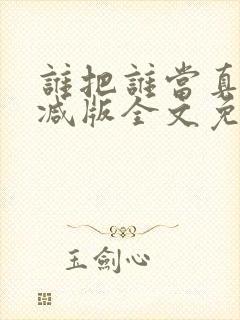 誰把誰當真
减版全文免
玉劍心